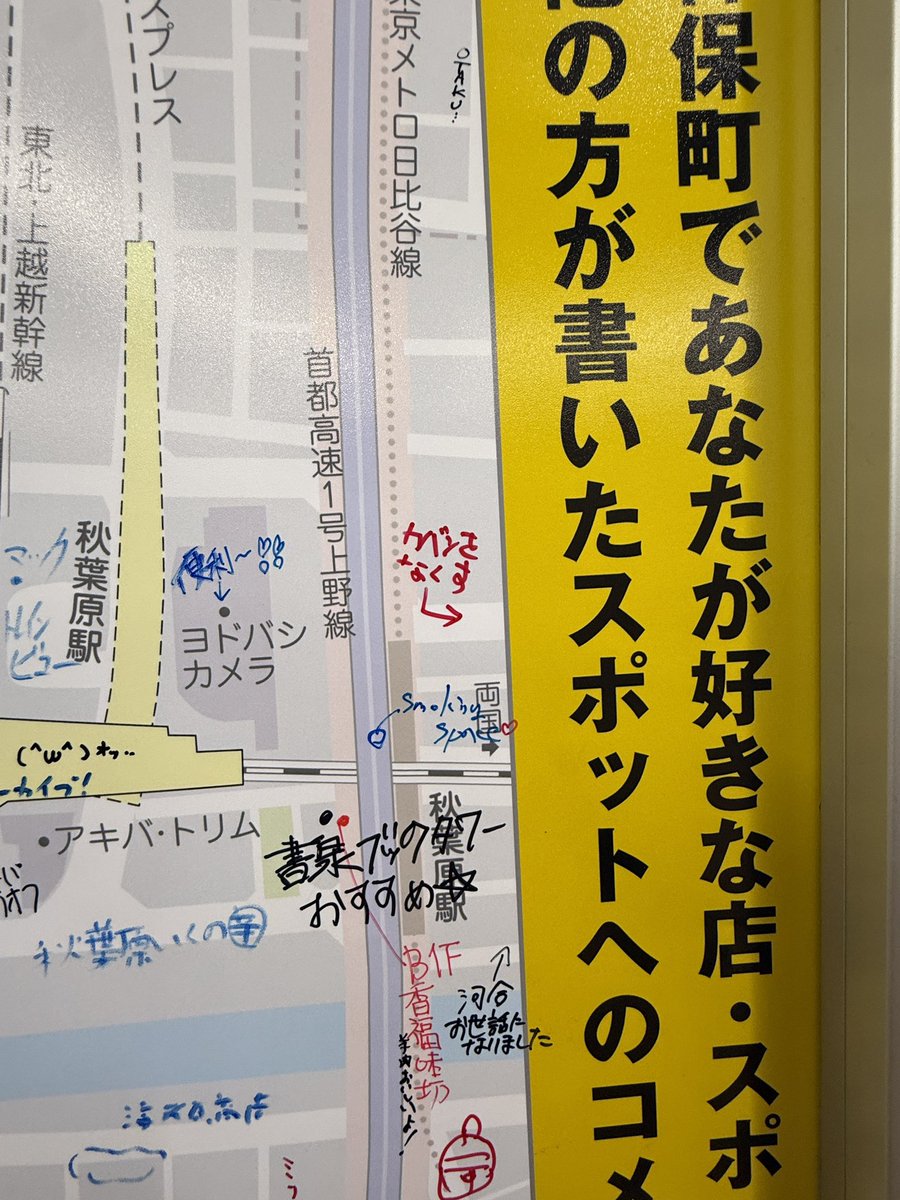 保町であなたが好きな店・スポ
の方が書いたスポットへのコメ
OTAKU..
東京メトロ日比谷線
スプレス
東北・上越新幹線
首都高速1号上野線
秋葉原駅
マック
ビュー
便利〜!!
ヨドバシ
カメラ
カバンを
なくす
両国
smoking
space
(^ω^)
アキバ・トリム
書泉ブックタワー
おすすめ☆
秋葉原駅
オフ
秋葉原いくの
B1F
香福味坊
羊肉おいしいよ!
河合
お世話に
なりました